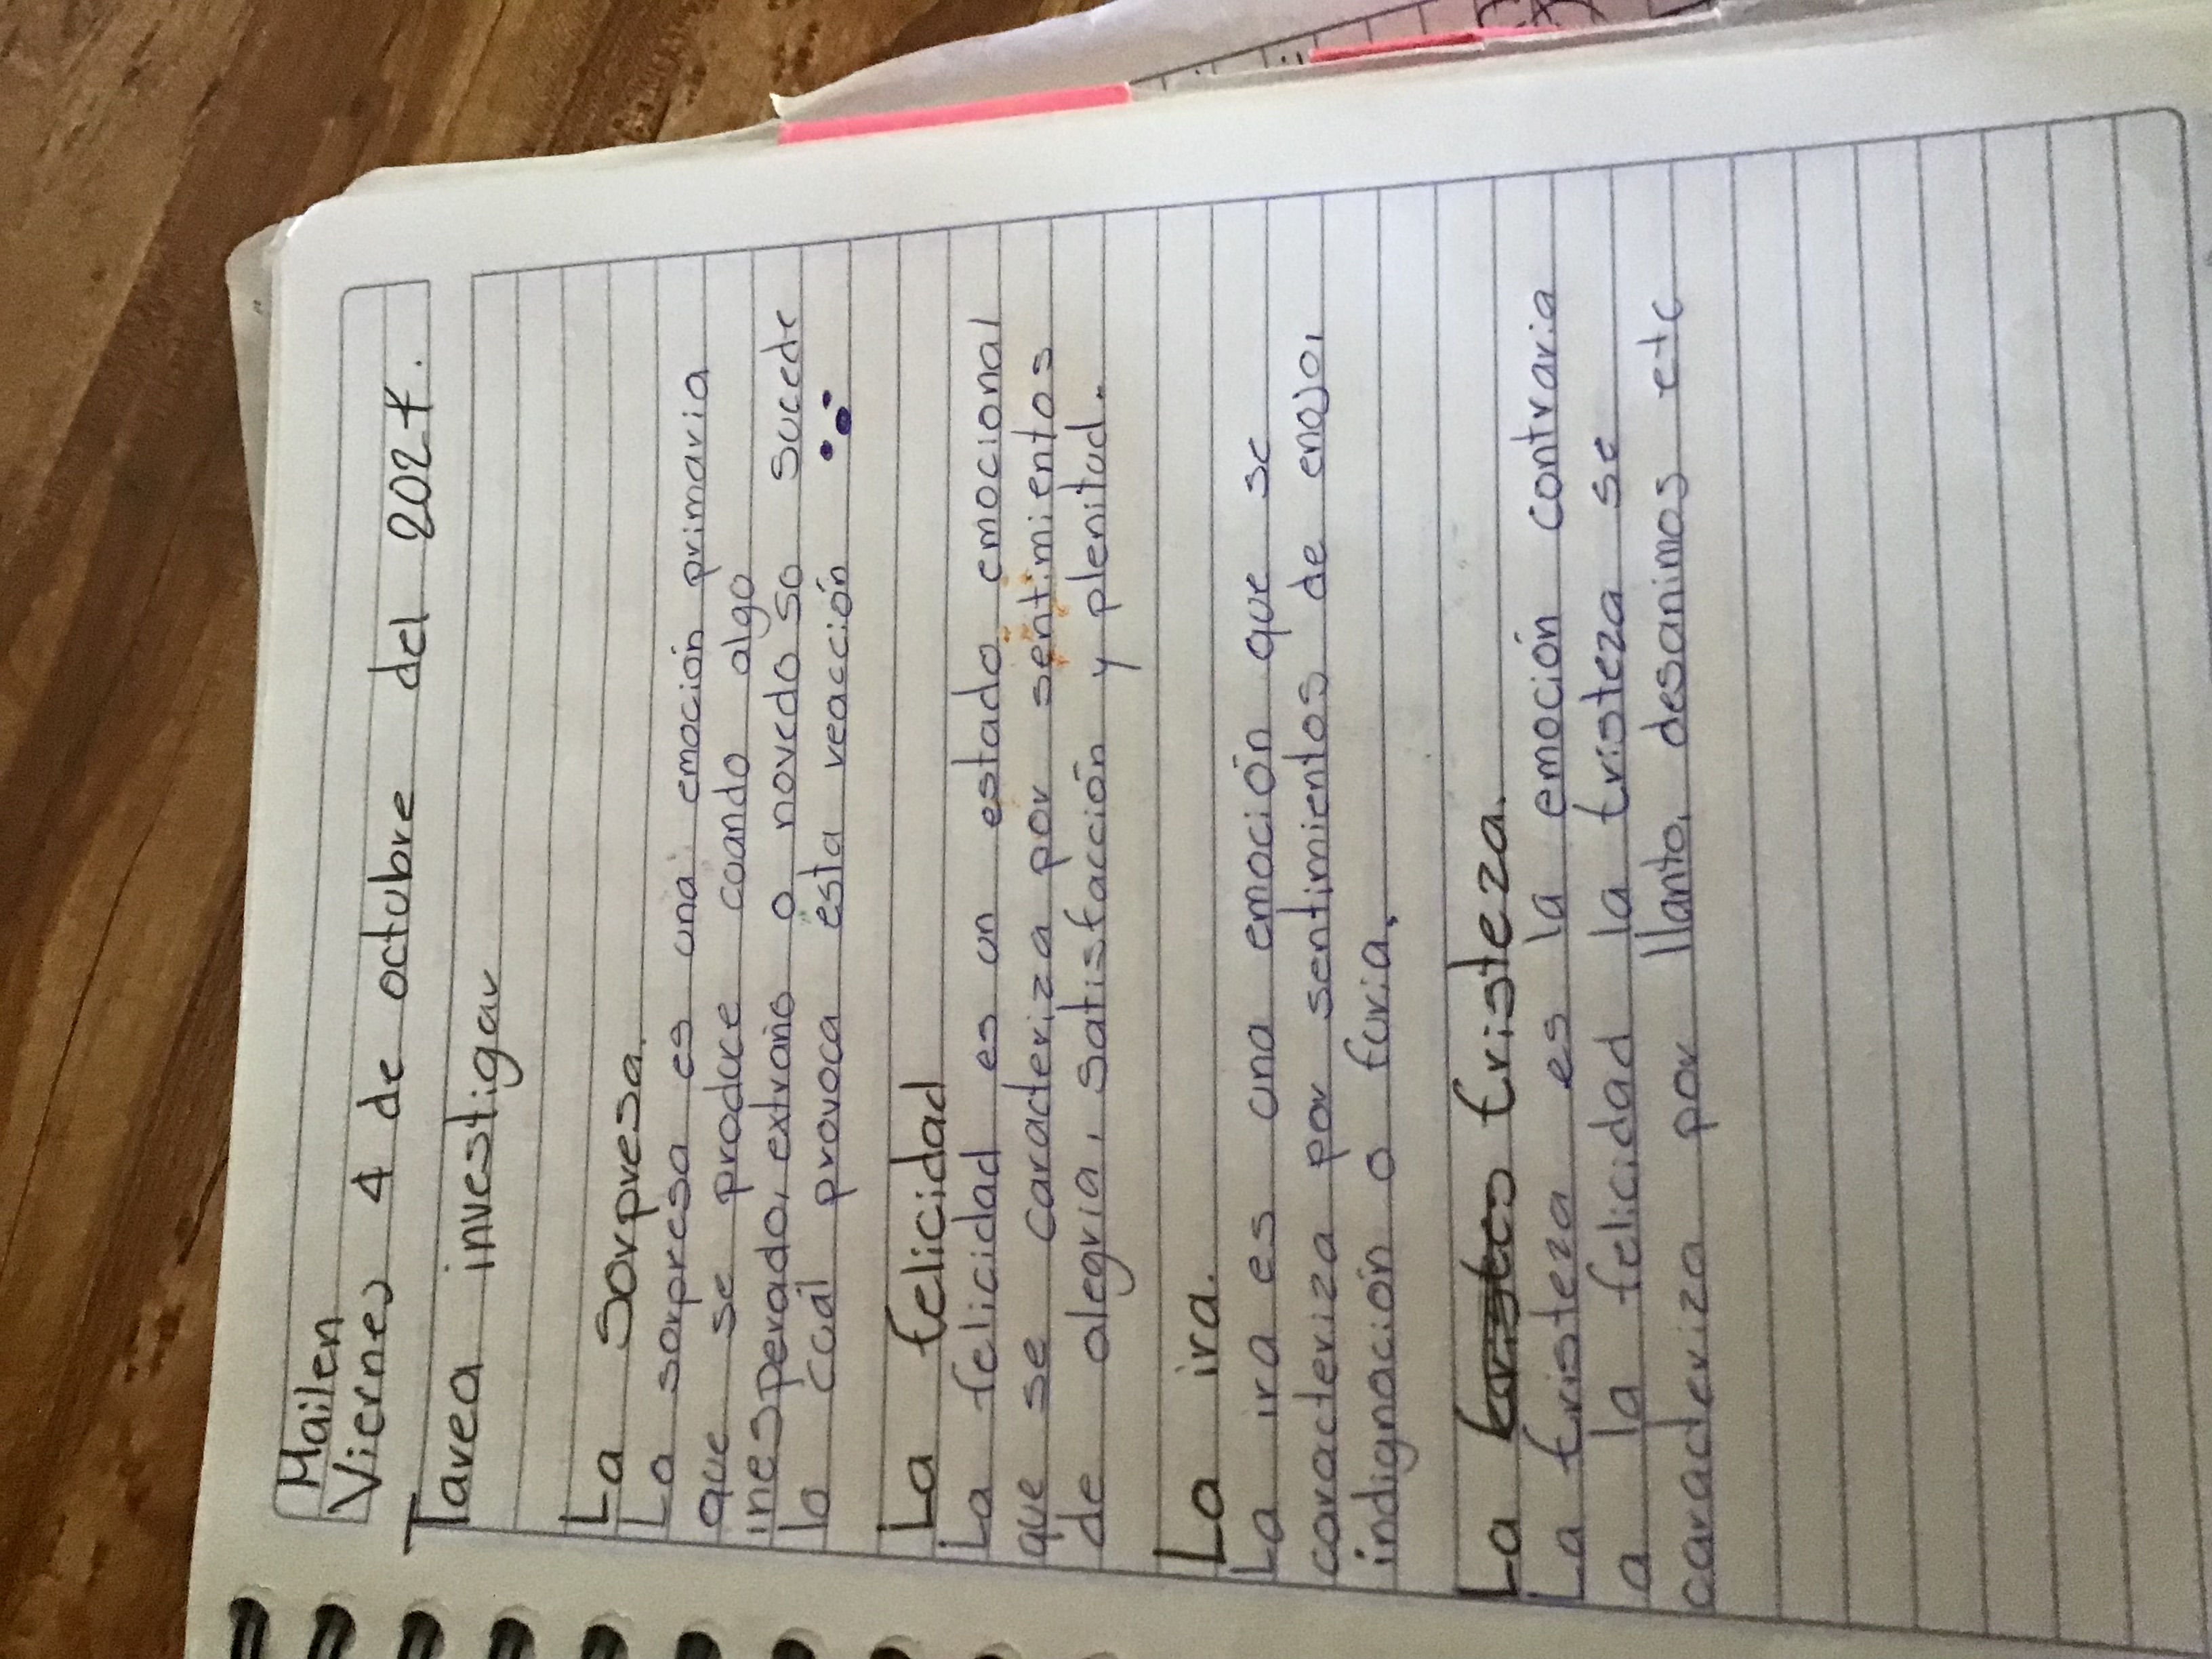 Mailen
Viernes 4 de octubre del 2024.
Tarea investigar
La sorpresa.
La sorpresa es una emoción primaria
que se produce cuando algo
inesperado, extraño o novedoso sucede
la cuál provoca esta reacción
La felicidad
La felicidad es un estado emocional
que se caracteriza por sentimientos
de alegria, satisfacción y plenitud.
La ira.
La ira es una emoción que se
caracteriza por sentimientos de enojo,
indignación o furia.
La tristeza.
La tristeza es la emoción contraria
a la felicidad la tristeza se
caracteriza por llanto, desanimos etc